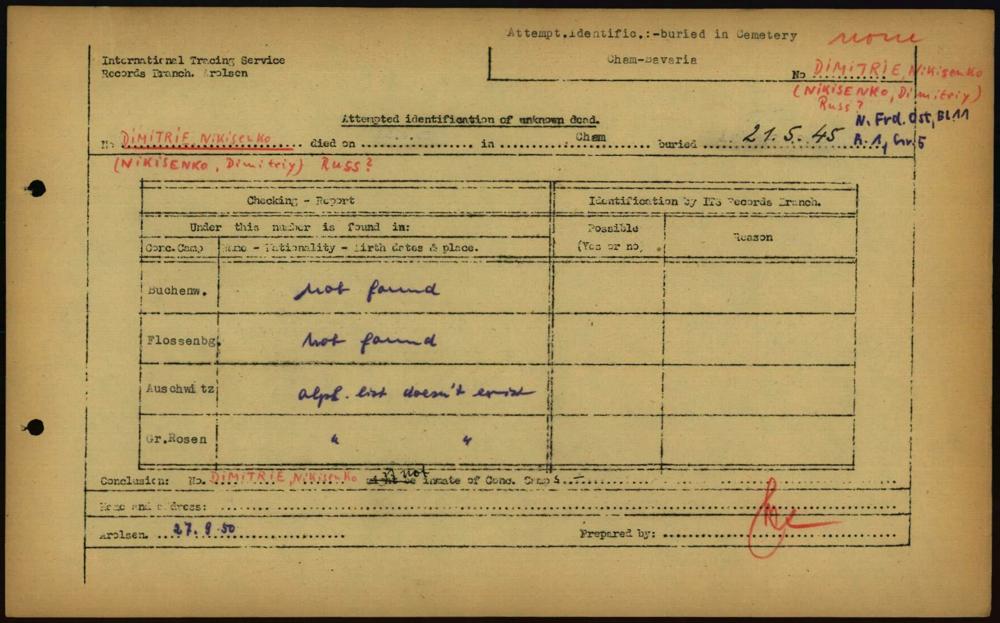 Attempt.Identific.:-buried in Cemetery
none
International Tracing Service
Records Branch. Arolsen
Cham-Bavaria
No DIMITRIE, Nikisenko
(NIKISENKO, Dimitriy)
Russ?
N. Frd. Ost, Bl. 11
A. 1, Gr. 5
Attempted identification of unknown dead.
No DIMITRIE, NiKiSENKO died on .......... in .......... Cham buried .......... 21.5.45
(NIKISENKO, Dimitriy) Russ?
Checking - Report
Identification by ITS Records Branch.
Under this number is found in:
Possible
(Yes or no)
Reason
Conc.Camp
Name - Nationality - Birth dates & place.
Buchenw. not found
Flossenbg. not found
Auschwitz alph. list doesn't exist
Gr.Rosen " "
Conclusion: No. DIMITRIE, Nikisenko is not be inmate of Conc. Camp
Name and address:
Arolsen. 27. 9. 50
Prepared by: